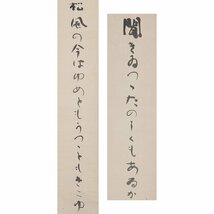 聞きゐつつたのしくもあるか
松風の今はゆめともうつつともきこゆ